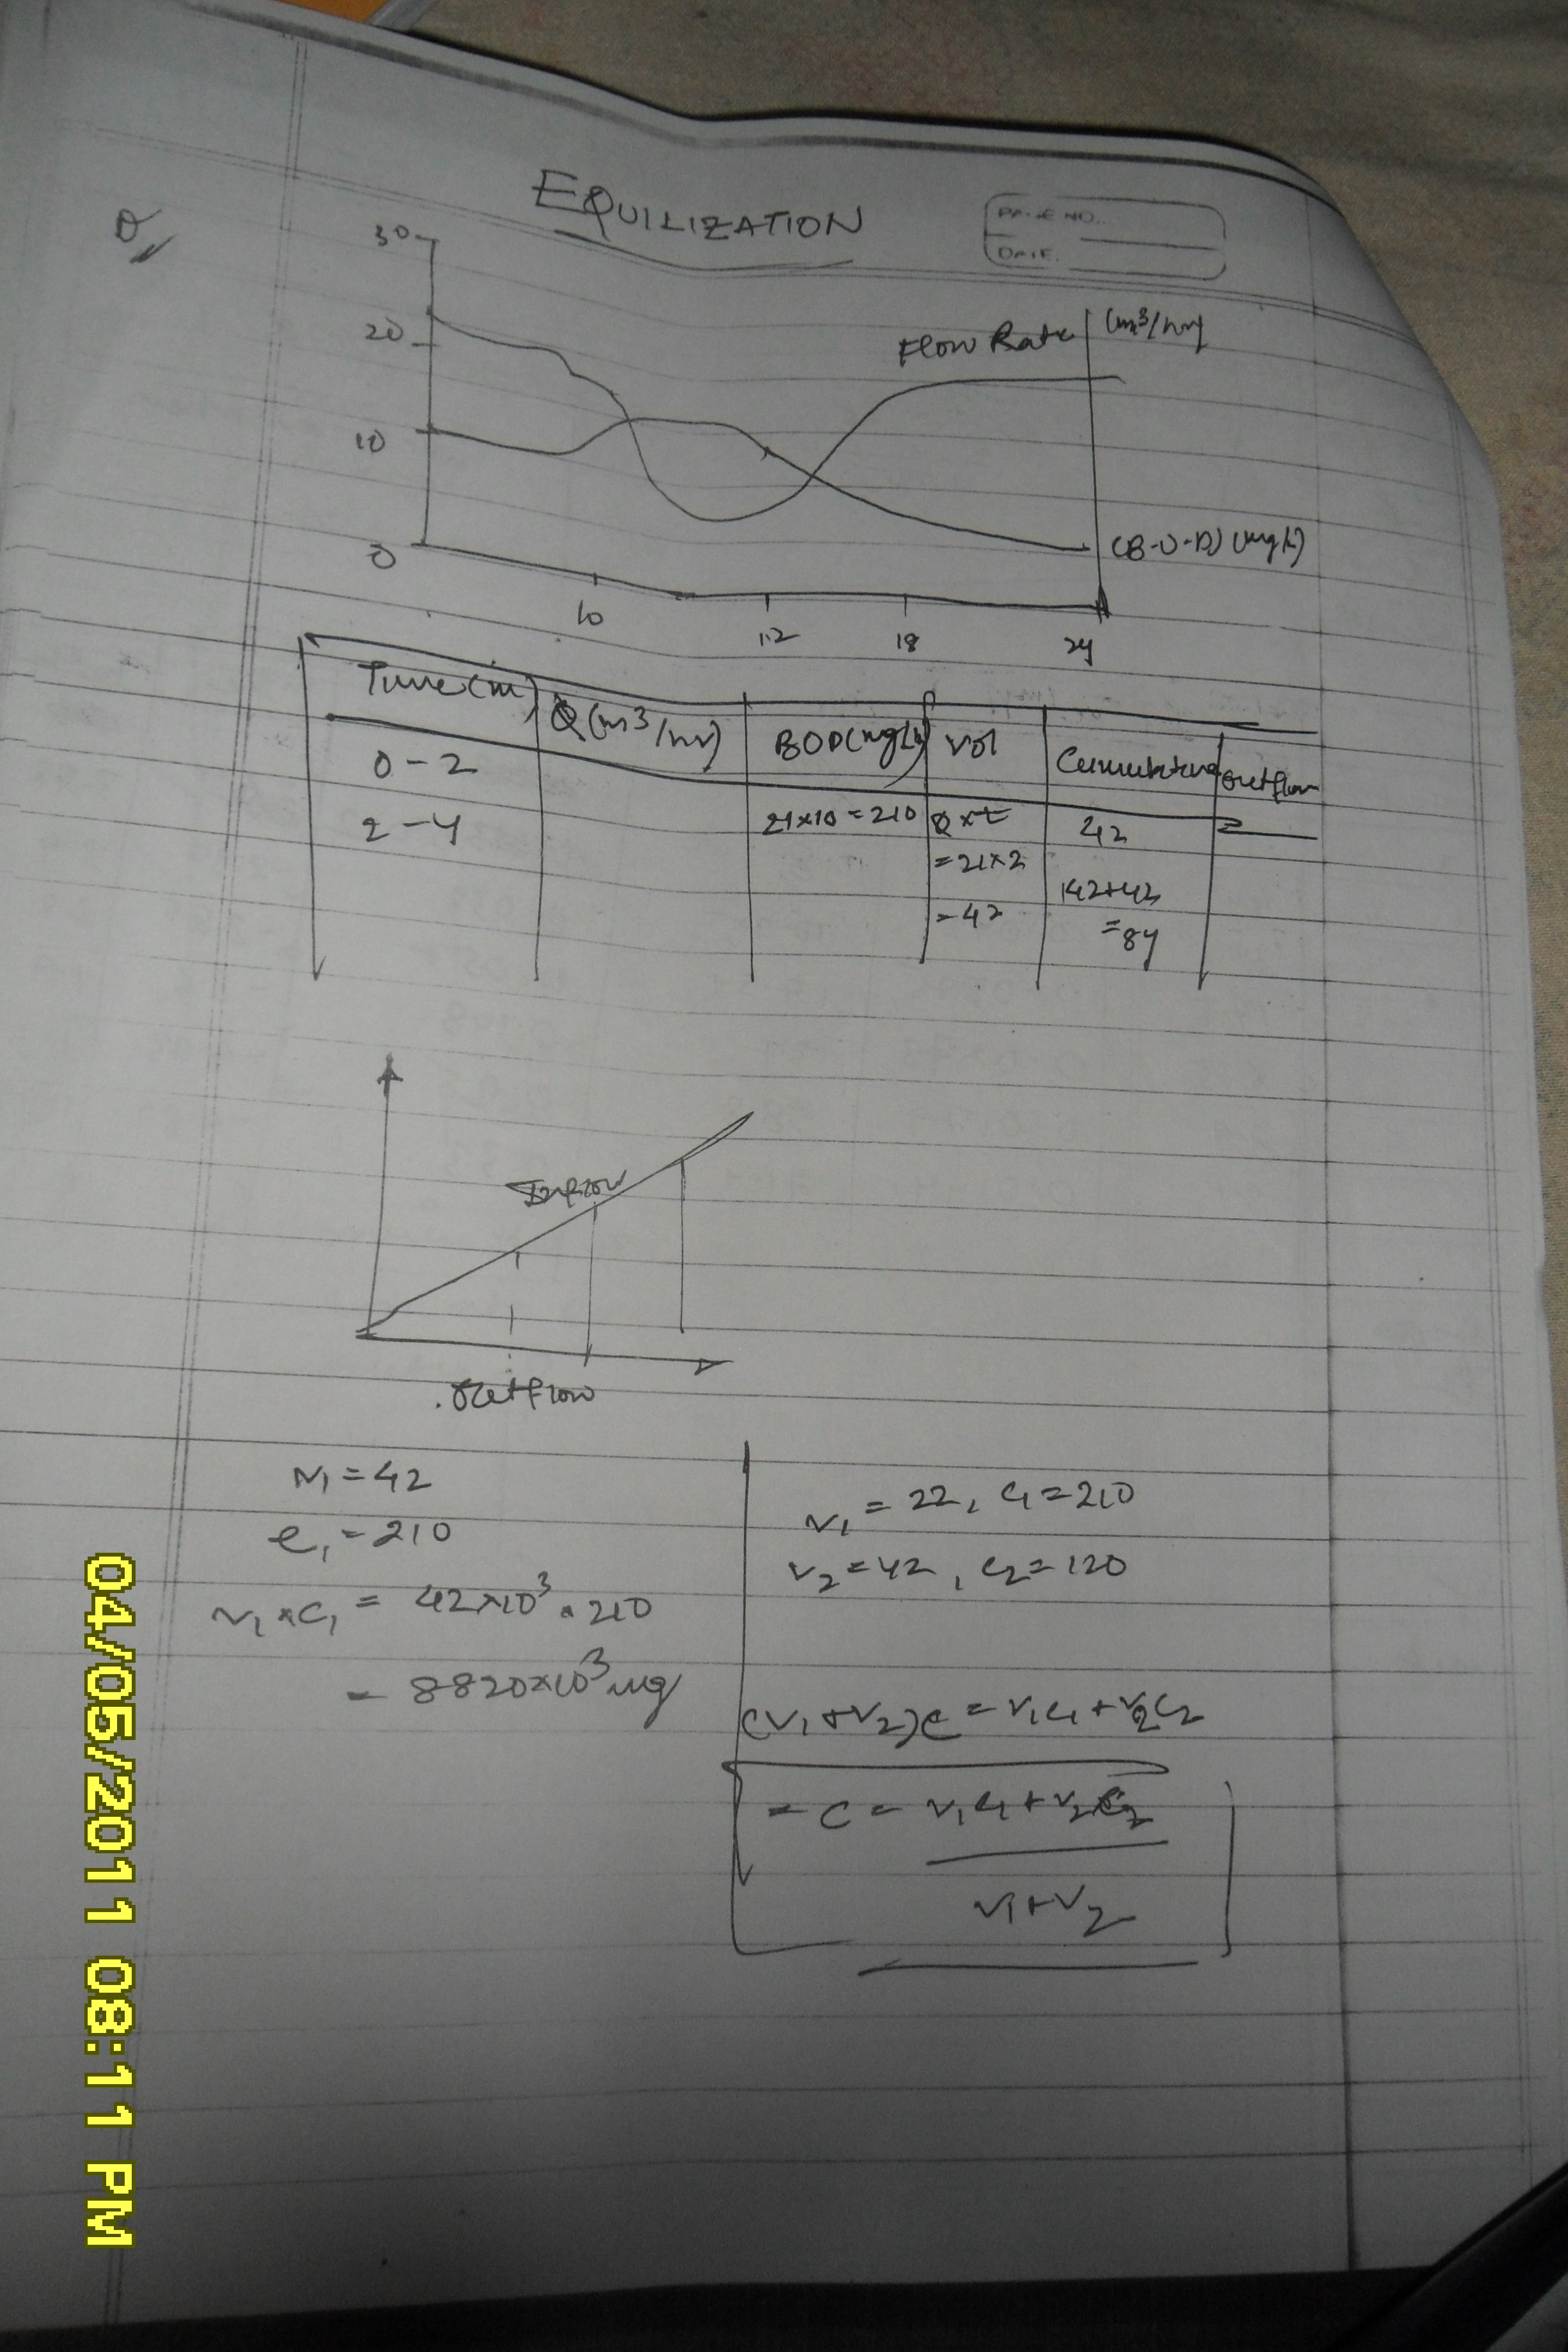 EQUILIZATION
PAGE NO.
DATE.
Q
30
20
10
0
Flow Rate (m3/hr)
(B-O-D) (mg/L)
10 12 18 24
Time(m) Q(m3/hr) BOD(mg/L) Vol Cumulative Outflow
0-2
2-4 21×10=210 Q×t 42
=21×2 42+42
=42 =84
Inflow
Outflow
V1=42
C1=210
V1×C1 = 42×10³×210
= 8820×10³ mg
V1 = 22, C1=210
V2=42, C2=120
(V1+V2)C = V1C1+V2C2
= C = V1C1+V2C2
V1+V2
04/05/2011 08:11 PM